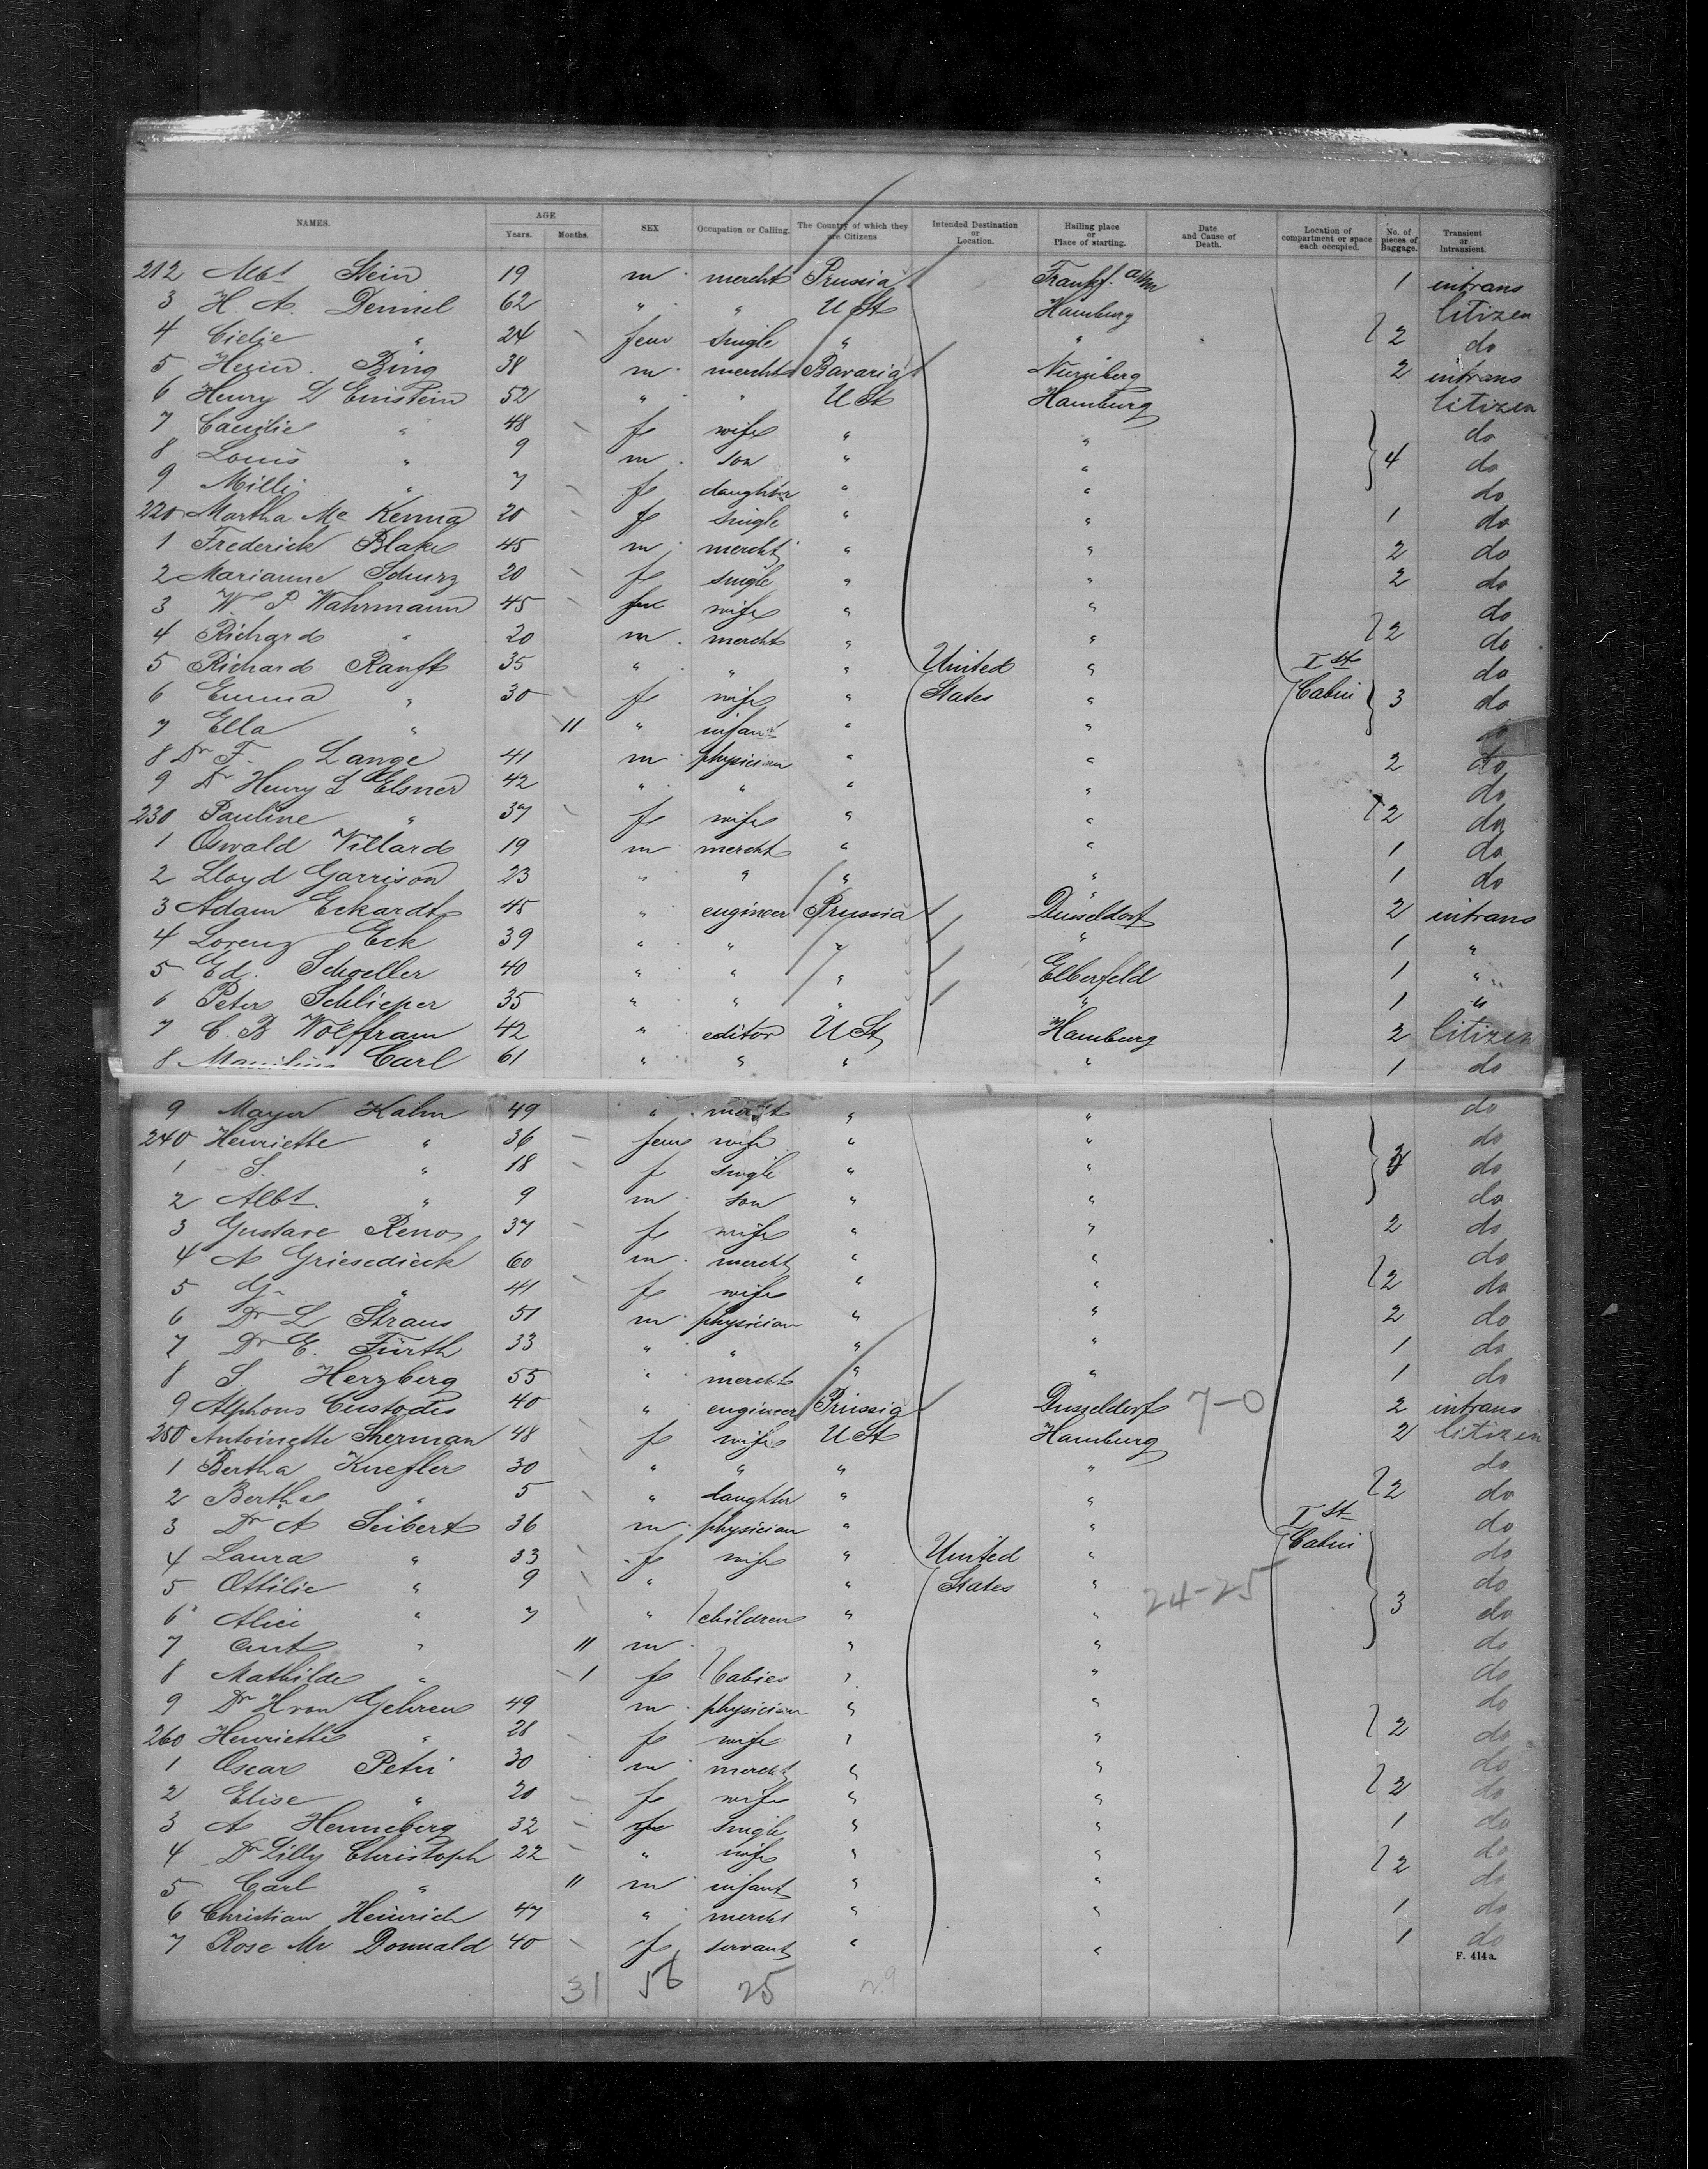 NAMES. AGE SEX Occupation or Calling. The Country of which they are Citizens Intended Destination or Location. Hailing place or Place of starting. Date and Cause of Death. Location of compartment or space each occupied. No. of pieces of Baggage. Transient or Intransient.
Years. Months.
212 Albt Stein 19 m mercht Prussia Frankf. a/m 1 intrans
3 H. A. 62 " " U St Hamburg Citizen
4 " 24 fem single " " 2 do
5 Bing 38 m mercht Bavaria Nürnberg 2 intrans
6 Henry L Einstein 52 " " U St Hamburg Citizen
7 " 48 f wife " " do
8 Louis " 9 m son " " 4 do
9 Milli " 7 f daughter " " do
220 Martha Mc Kenna 20 f single " " 1 do
1 Frederick Blake 45 m mercht " " 2 do
2 Marianne Schurz 20 f single " " 2 do
3 W. P Wahrmann 45 fem wife " " do
4 Richard " 20 m mercht " " 2 do
5 Richard Ranft 35 " " " United " Ist do
6 Emma " 30 f wife " States " Cabin 3 do
7 Ella " 11 " infant " " do
8 Dr F. Lange 41 m physician " " 2 do
9 Dr Henry L Elsner 42 " " " " do
230 Pauline " 37 f wife " " 2 do
1 Oswald Villard 19 m mercht " " 1 do
2 Lloyd Garrison 23 " " " " 1 do
3 Adam Eckardt 45 " engineer Prussia Dusseldorf 2 intrans
4 Lorenz Eck 39 " " " " 1 "
5 Ed. Schoeller 40 " " " Elberfeld 1 "
6 Peter Schlieper 35 " " " " 1 "
7 C. B Wolffram 42 " editor U St Hamburg 2 Citizen
8 Carl 61 " " " " 1 do
9 Mayer Kahn 49 " mercht " " do
240 Henriette " 36 fem wife " " do
1 S. " 18 f single " " do
2 Albt. " 9 m son " " do
3 Gustave Reno 37 f wife " " 2 do
4 A Griesedieck 60 m mercht " " do
5 G. " 41 f wife " " 2 do
6 Dr L Straus 51 m physician " " 2 do
7 Dr E. Fürth 33 " " " " 1 do
8 S Herzberg 55 " mercht " " 1 do
9 Alphons Custodis 40 " engineer Prussia Dusseldorf 7-0 2 intrans
250 Antoinette Sherman 48 f wife U St Hamburg 2 Citizen
1 Bertha Knefler 30 " " " " do
2 Bertha " 5 " daughter " " 2 do
3 Dr A Seibert 36 m physician " " Ist do
4 Laura " 33 f wife " United " Cabin do
5 Ottilie " 9 " " States " 24-25 do
6 Alice " 7 " children " " 3 do
7 " 11 m " " do
8 Mathilde " 1 f babies " " do
9 Dr H von Gehren 49 m physician " " do
260 Henriette " 28 f wife " " 2 do
1 Oscar Petri 30 m mercht " " do
2 Elise " 20 f wife " " 2 do
3 A Henneberg 32 f single " " 1 do
4 Dr Lilly Christoph 22 " wife " " do
5 Carl " 11 m infant " " 2 do
6 Christian Heinrich 47 " mercht " " 1 do
7 Rose Mc Donnald 40 f servant " " 1 do
F. 414 a.
31 56 25 29